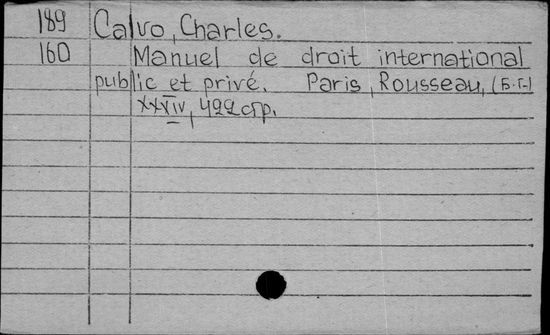 189 Calvo, Charles.
160 Manuel de droit international
public et privé. Paris, Rousseau, (Б.г.)
XXXIV, 422 стр.